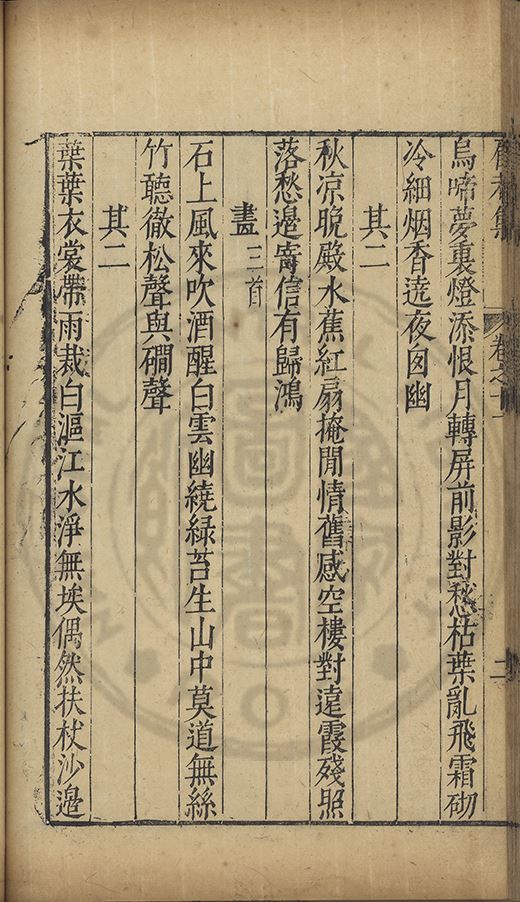 卷之十二
二
烏啼夢裏燈添恨月轉屏前影對愁枯葉亂飛霜砌
冷細烟香遶夜囪幽
其二
秋凉晚殿水蕉紅扇掩閒情舊感空樓對遠霞殘照
落愁邉寄信有歸鴻
畫三首
石上風來吹酒醒白雲幽繞緑苔生山中莫道無絲
竹聽徹松聲與磵聲
其二
葉葉衣裳帶雨裁白漚江水淨無埃偶然扶杖沙邉